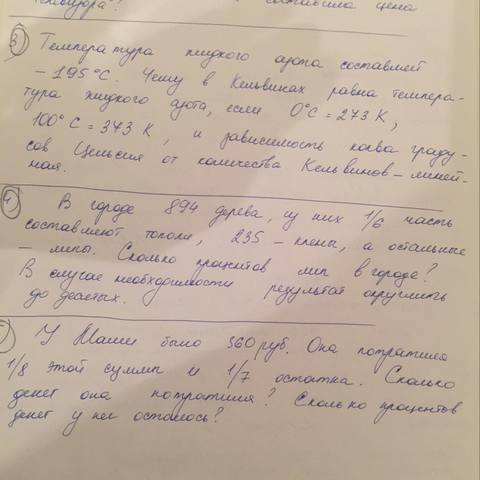 составила цена
3) Температура жидкого азота составляет
– 195°С. Чему в Кельвинах равна темпера-
тура жидкого азота, если 0°С = 273 К,
100°С = 373 К, и зависимость кол-ва граду-
сов Цельсия от количества Кельвинов – линей-
ная.
4) В городе 894 дерева, из них 1/6 часть
составляют тополи, 235 – клёны, а остальные
– липы. Сколько процентов лип в городе?
В случае необходимости результат округлить
до десятых.
У Маши было 560 руб. Она потратила
1/8 этой суммы и 1/7 остатка. Сколько
денег она потратила? Сколько процентов
денег у неё осталось?